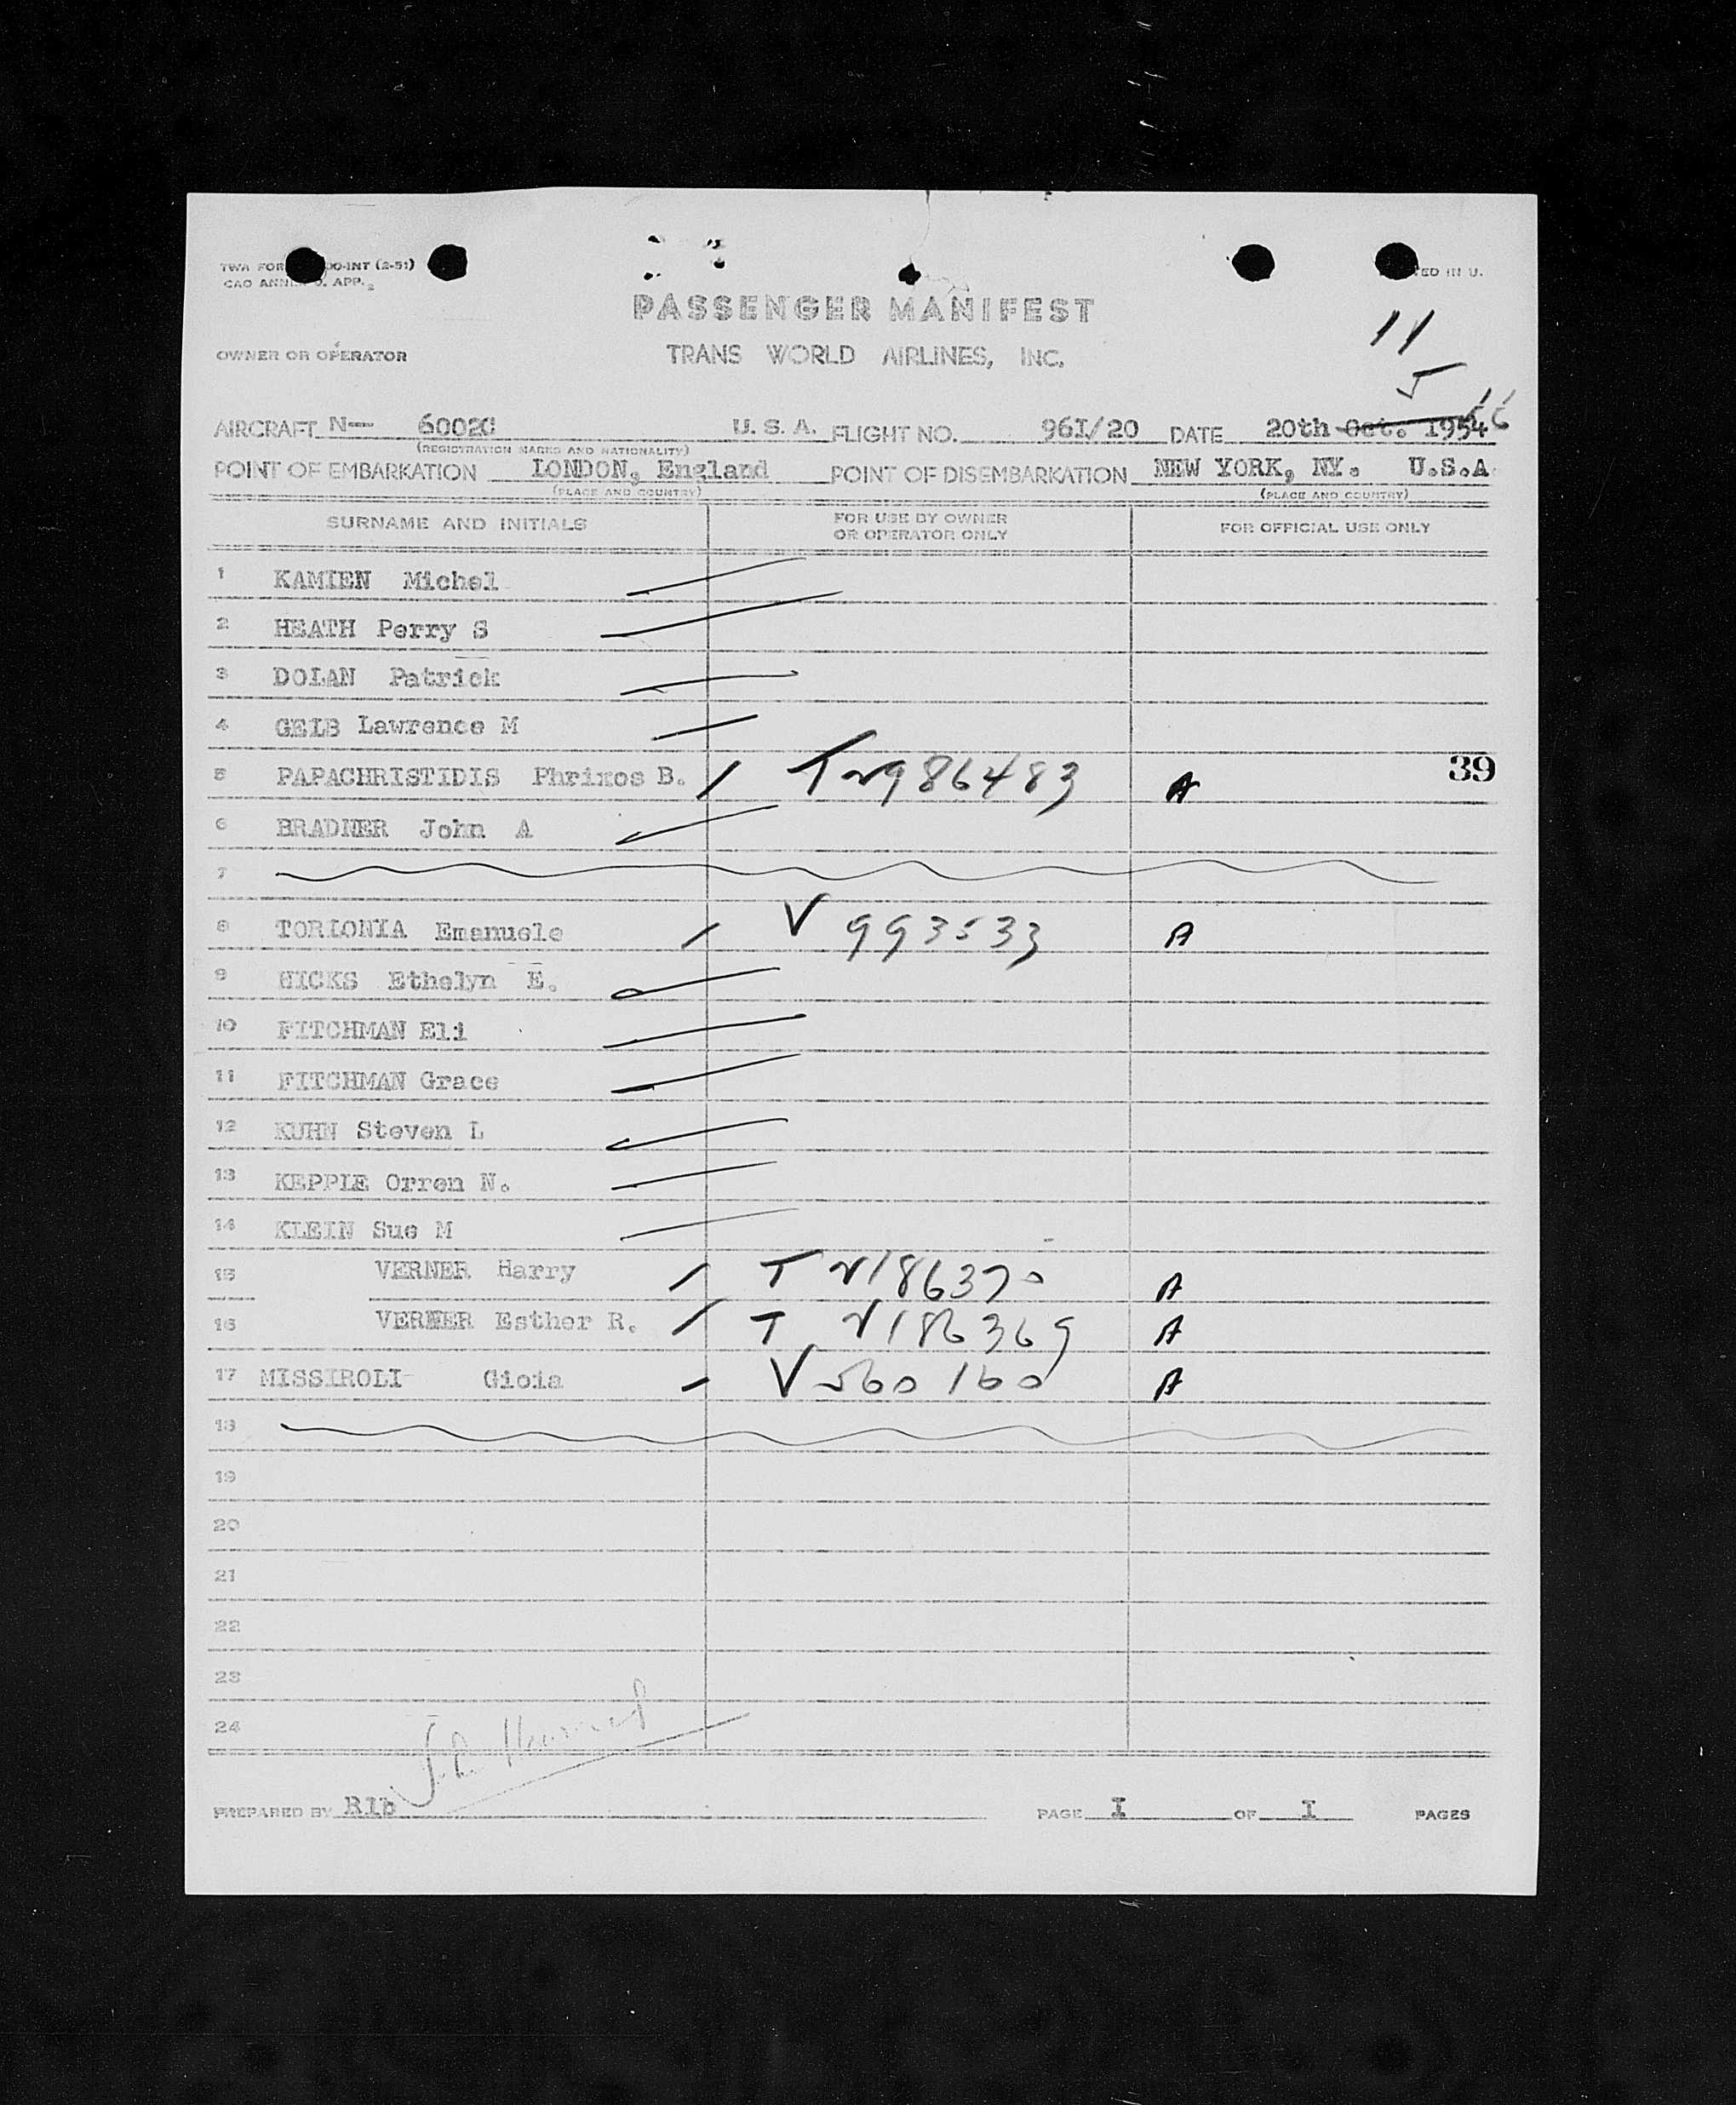 TWA FOR 00-INT (2-51)
CAO ANN 9. APP. 2
TED IN U.
PASSENGER MANIFEST
11
OWNER OR OPERATOR TRANS WORLD AIRLINES, INC.
5
AIRCRAFT N-- 6002C U. S. A. FLIGHT NO. 96I/20 DATE 20th Oct. 1954
(REGISTRATION MARKS AND NATIONALITY)
POINT OF EMBARKATION LONDON, England POINT OF DISEMBARKATION NEW YORK, NY. U.S.A.
(PLACE AND COUNTRY) (PLACE AND COUNTRY)
SURNAME AND INITIALS FOR USE BY OWNER OR OPERATOR ONLY FOR OFFICIAL USE ONLY
1 KAMIEN Michel
2 HEATH Perry S
3 DOLAN Patrick
4 GELB Lawrence M
5 PAPACHRISTIDIS Phrixos B. T V986483 A 39
6 BRADNER John A
7
8 TORLONIA Emanuele V 993533 A
9 HICKS Ethelyn E.
10 FITCHMAN Eli
11 FITCHMAN Grace
12 KUHN Steven L
13 KEPPLE Orren N.
14 KLEIN Sue M
15 VERNER Harry T V186370 A
16 VERNER Esther R. T V186369 A
17 MISSIROLI Gioia V 560160 A
18
19
20
21
22
23
24
PREPARED BY Rlb PAGE I OF I PAGES